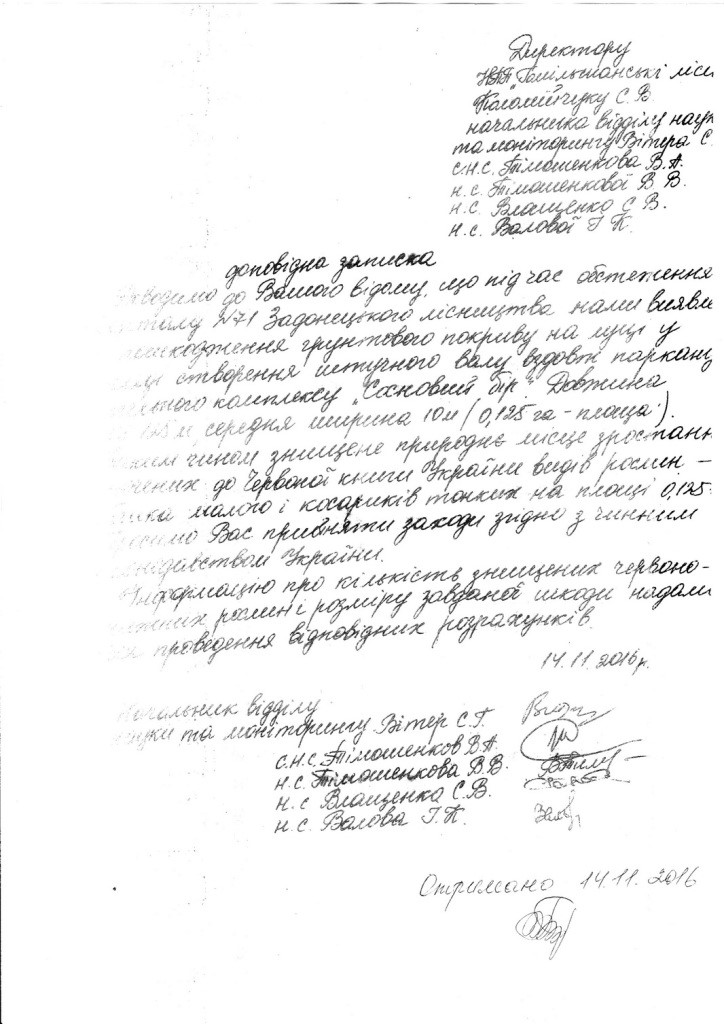 Директору
НПП "Гомільшанські ліси
Коломійчуку С. В.
начальника відділу наук
та моніторингу Вітера С.
с.н.с. Тімошенкова В. А.
н.с. Тімошенкової В. В.
н.с. Влащенко С. В.
н.с. Валової І. П.
доповідна записка
водимо до Вашого відому, що під час обстеження
кварталу №71 Задонецького лісництва нами виявле
пошкодження грунтового покриву на луці у
створення штучного валу вздовж паркану
комплексу „Сосновий бір". Довжина
середня ширина 10 м (0,125 га - площа).
чином знищене природнє місце зростанн
чених до Червоної книги України видів рослин -
малого і косариків тонких на площі 0,125
симо Вас прийняти заходи згідно з чинним
законодавством України.
Інформацію про кількість знищених червоно-
книжних рослин і розміру завданої шкоди надамо
проведення відповідних розрахунків.
14.11.2016 р.
Начальник відділу
науки та моніторингу Вітер С.Г.
с.н.с. Тімошенков В.А.
н.с. Тімошенкова В.В.
н.с. Влащенко С.В.
н.с. Валова І.П.
Отримано 14.11.2016